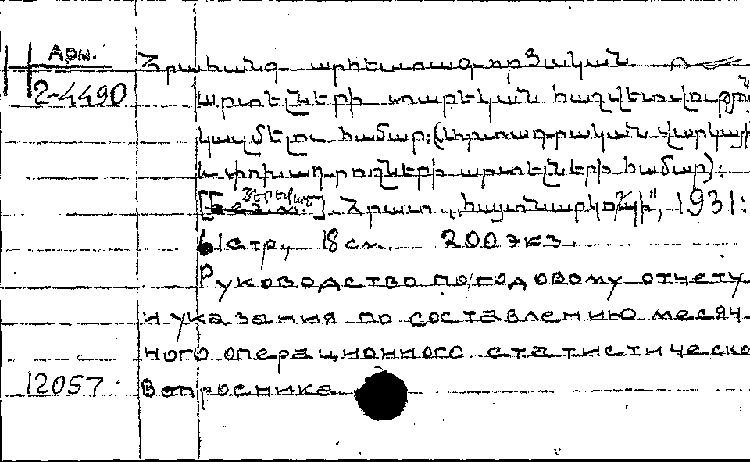 Арм.
2-4490
Հրահանգ արհեստագործական
արտելների տարեկան հաշվետվություն
կազմելու համար: (Արտադրական վարկային
և փոխադրողների արտելների համար):
[Երևան] Հրատ. „Հայսնարկոմի“, 1931:
61 стр., 18 см. 200 экз.
Руководство по годовому отчету
и указания по составлению месяч-
ного операционного статистическо
12057. вопросника